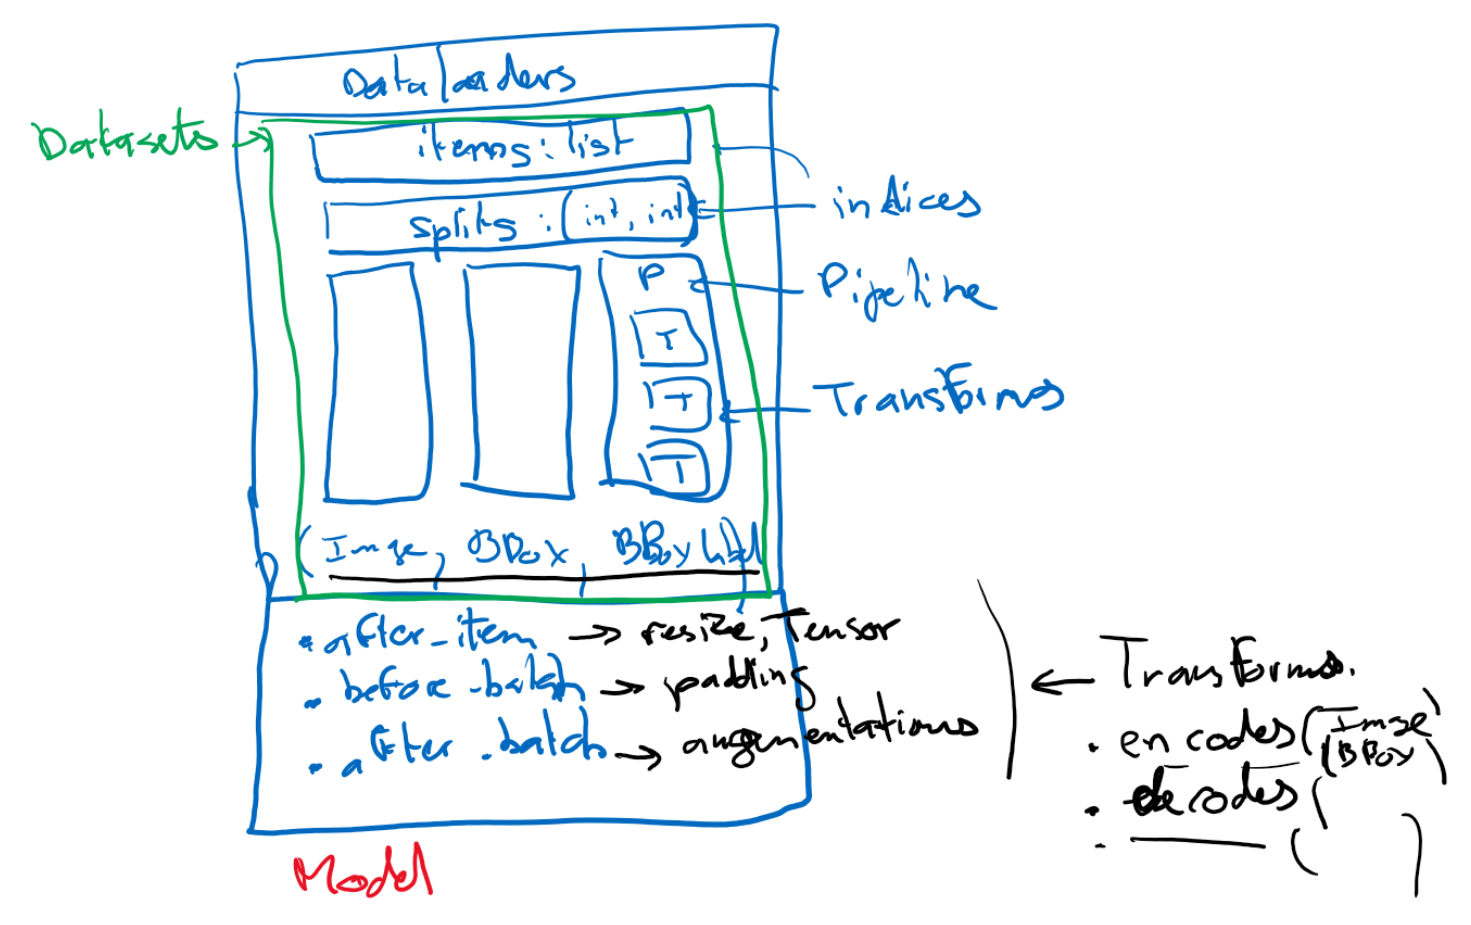 Dataloaders
Datasets
items: list
splits: (int, int)
indices
P
Pipeline
T
T
Transforms
T
(Image, BBox, BBox Lbl)
• after_item → resize, Tensor
• before_batch → padding
• after_batch → augmentations
Transforms.
• encodes (Image)
(BBox)
• decodes (
• ____ ( )
Model